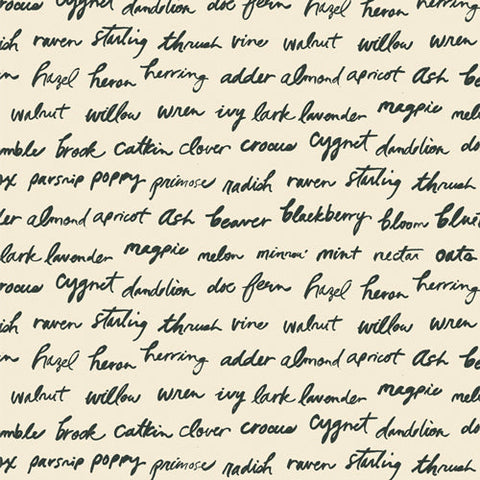 crocus cygnet dandelion doe fern hazel heron herring
radish raven starling thrush vine walnut willow wren
hazel heron herring adder almond apricot ash
walnut willow wren ivy lark lavender magpie
brook catkin clover crocus cygnet dandelion
parsnip poppy primose radish raven starling thrush
almond apricot ash beaver blackberry bloom
lark lavender magpie melon minnow mint nectar oats
crocus cygnet dandelion doe fern hazel heron herring
raven starling thrush vine walnut willow wren
hazel heron herring adder almond apricot ash
walnut willow wren ivy lark lavender magpie
brook catkin clover crocus cygnet dandelion
parsnip poppy primose radish raven starling thrush